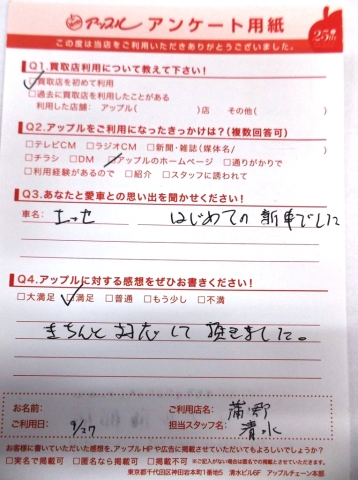 アップル アンケート用紙
25th
この度は当店をご利用いただきありがとうございました。
Q1.買取店利用について教えて下さい!
□買取店を初めて利用
□過去に買取店を利用したことがある
利用した店舗: アップル( )店 その他( )
Q2.アップルをご利用になったきっかけは?(複数回答可)
□テレビCM □ラジオCM □新聞・雑誌(媒体名/ )
□チラシ □DM □アップルのホームページ □通りがかりで
□利用経験があるので □紹介 □スタッフに誘われて
Q3.あなたと愛車との思い出を聞かせください!
車名: エッセ はじめての新車でした
Q4.アップルに対する感想をぜひお書きください!
□大満足 □満足 □普通 □もう少し □不満
きちんと対応して頂きました。
お名前: ご利用店名: 蒲郡
ご利用日: 9/27 担当スタッフ名: 清水
お客様に書いていただいた感想を、アップルHPや広告に掲載させていただいてもよろしいでしょうか?
□実名で掲載可 □匿名なら掲載可 □掲載不可 ※ご記入がない場合は匿名での掲載とさせていただきます。
東京都千代田区神田岩本町1番地5 清水ビル6F アップルチェーン本部